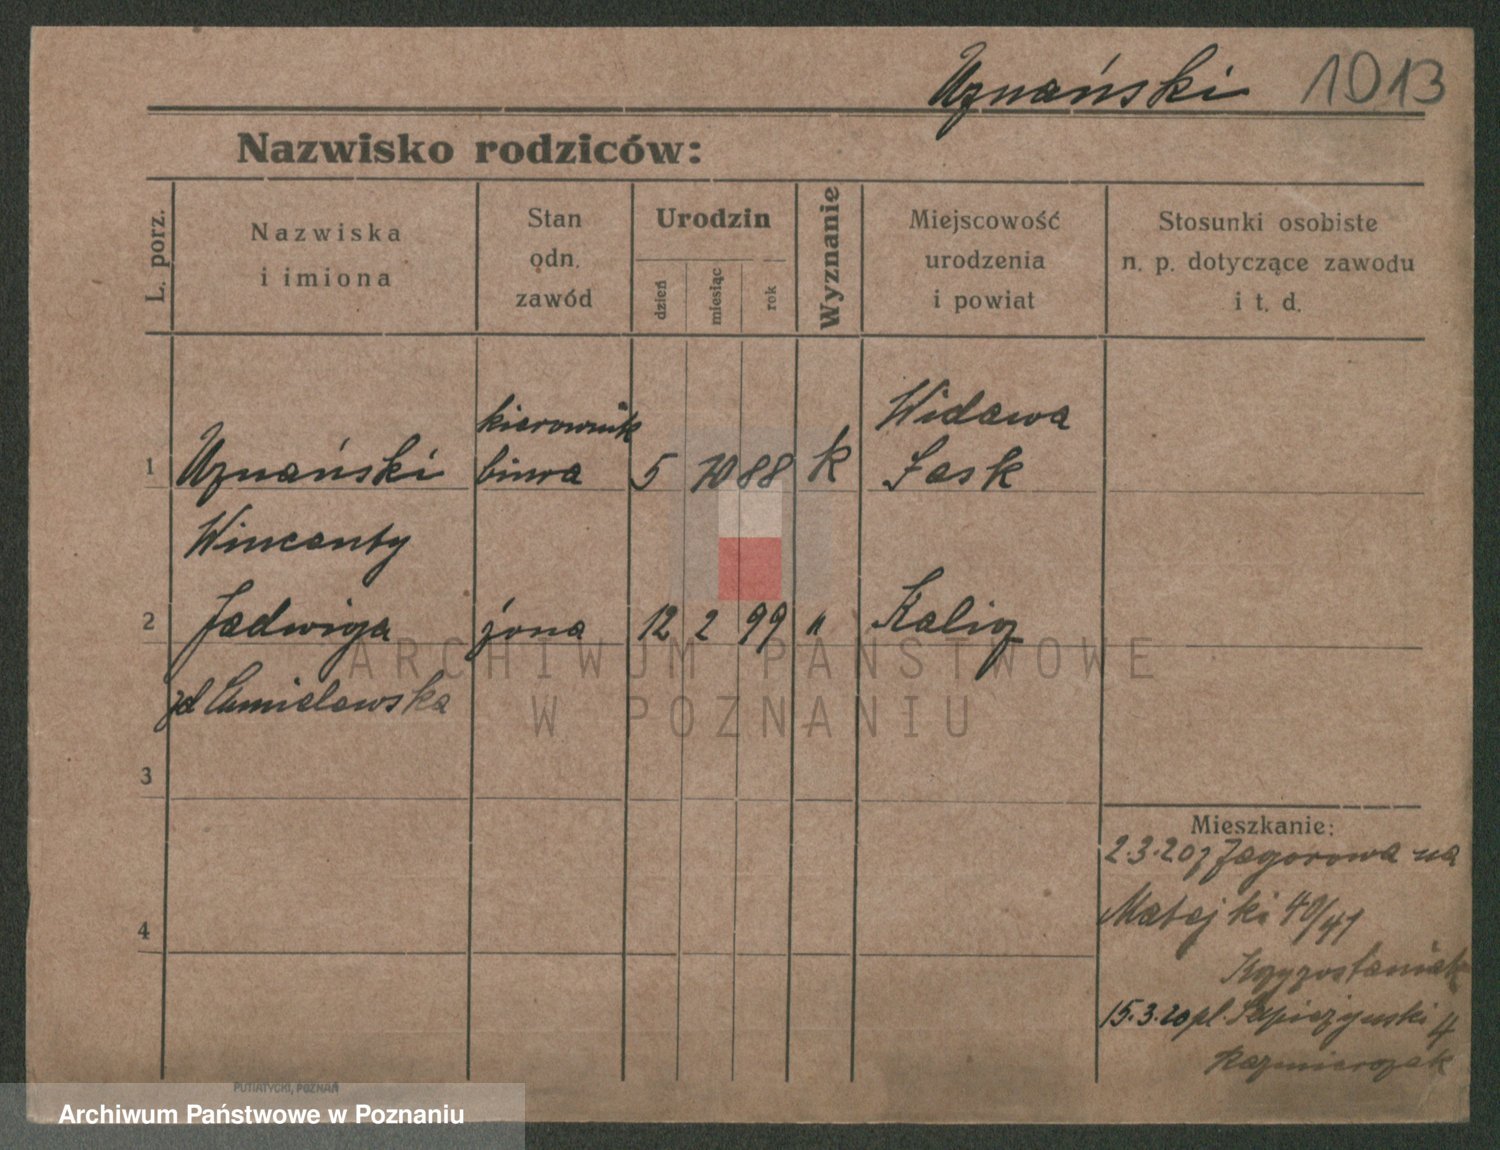 Uznański 1013
Nazwisko rodziców:
L. porz.
Nazwiska
i imiona
Stan
odn.
zawód
Urodzin
dzień
miesiąc
rok
Wyznanie
Miejscowość
urodzenia
i powiat
Stosunki osobiste
n. p. dotyczące zawodu
i t. d.
kierownik
Widawa
1 Uznański biura 5 10 88 k Łask
Wincenty
2 Jadwiga żona 12 2 99 " Kalisz
zd Chmielewska
3
4
Mieszkanie:
2.3.20 z Zagorowa na
Matejki 40/41
Krzyżostaniak
15.3.20 pl. Sapieżyński 4
Kazmierczak
PUTIATYCKI, POZNAŃ
ARCHIWUM PAŃSTWOWE
W POZNANIU
Archiwum Państwowe w Poznaniu